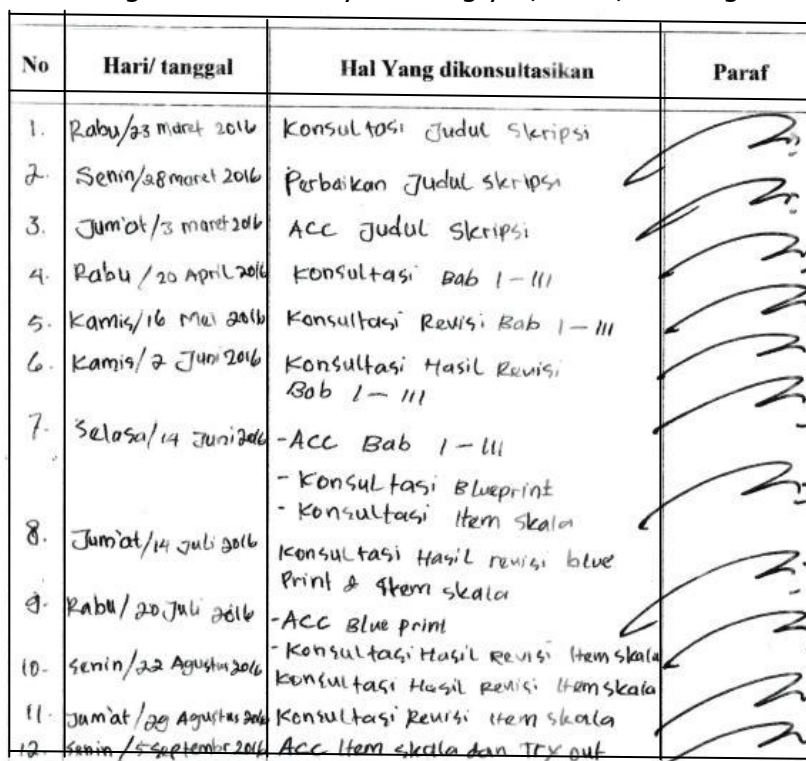 No Hari/ tanggal Hal Yang dikonsultasikan Paraf
1. Rabu/23 maret 2016 Konsultasi Judul Skripsi
2. Senin/28 maret 2016 Perbaikan Judul skripsi
3. Jum'at/3 maret 2016 ACC Judul Skripsi
4. Rabu / 20 April 2016 Konsultasi Bab I - III
5. Kamis/16 Mei 2016 Konsultasi Revisi Bab I - III
6. Kamis/ 2 Juni 2016 Konsultasi Hasil Revisi
Bab I - III
7. Selasa/14 Juni 2016 -ACC Bab I - III
- Konsultasi Blueprint
- Konsultasi Item Skala
8. Jum'at/14 Juli 2016 Konsultasi Hasil revisi blue
Print & Item skala
9. Rabu/ 20 Juli 2016 -ACC Blue print
- Konsultasi Hasil Revisi Item skala
10. Senin/22 Agustus 2016 Konsultasi Hasil Revisi Item skala
11. Jum'at/29 Agustus 2016 Konsultasi Revisi Item skala
12. Senin /5 Septembr 2016 Acc Item skala dan Try out